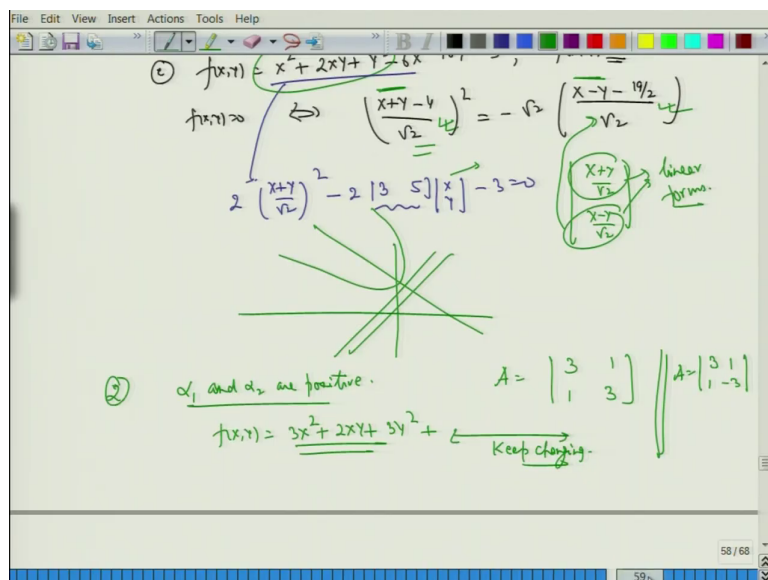 File Edit View Insert Actions Tools Help
B I
f(x,y) = x² + 2xy + y² - 6x
f(x,y)=0 ⇔ ((x+y-4)/√2)² = -√2 ((x-y-19/2)/√2)
2((x+y)/√2)² - 2[3 5][x y] - 3 = 0
[(x+y)/√2
(x-y)/√2]
linear forms.
② α₁ and α₂ are positive.
A = [3 1
1 3]
A = [3 1
1 -3]
f(x,y) = 3x² + 2xy + 3y² +
Keep changing.
58 / 68
59